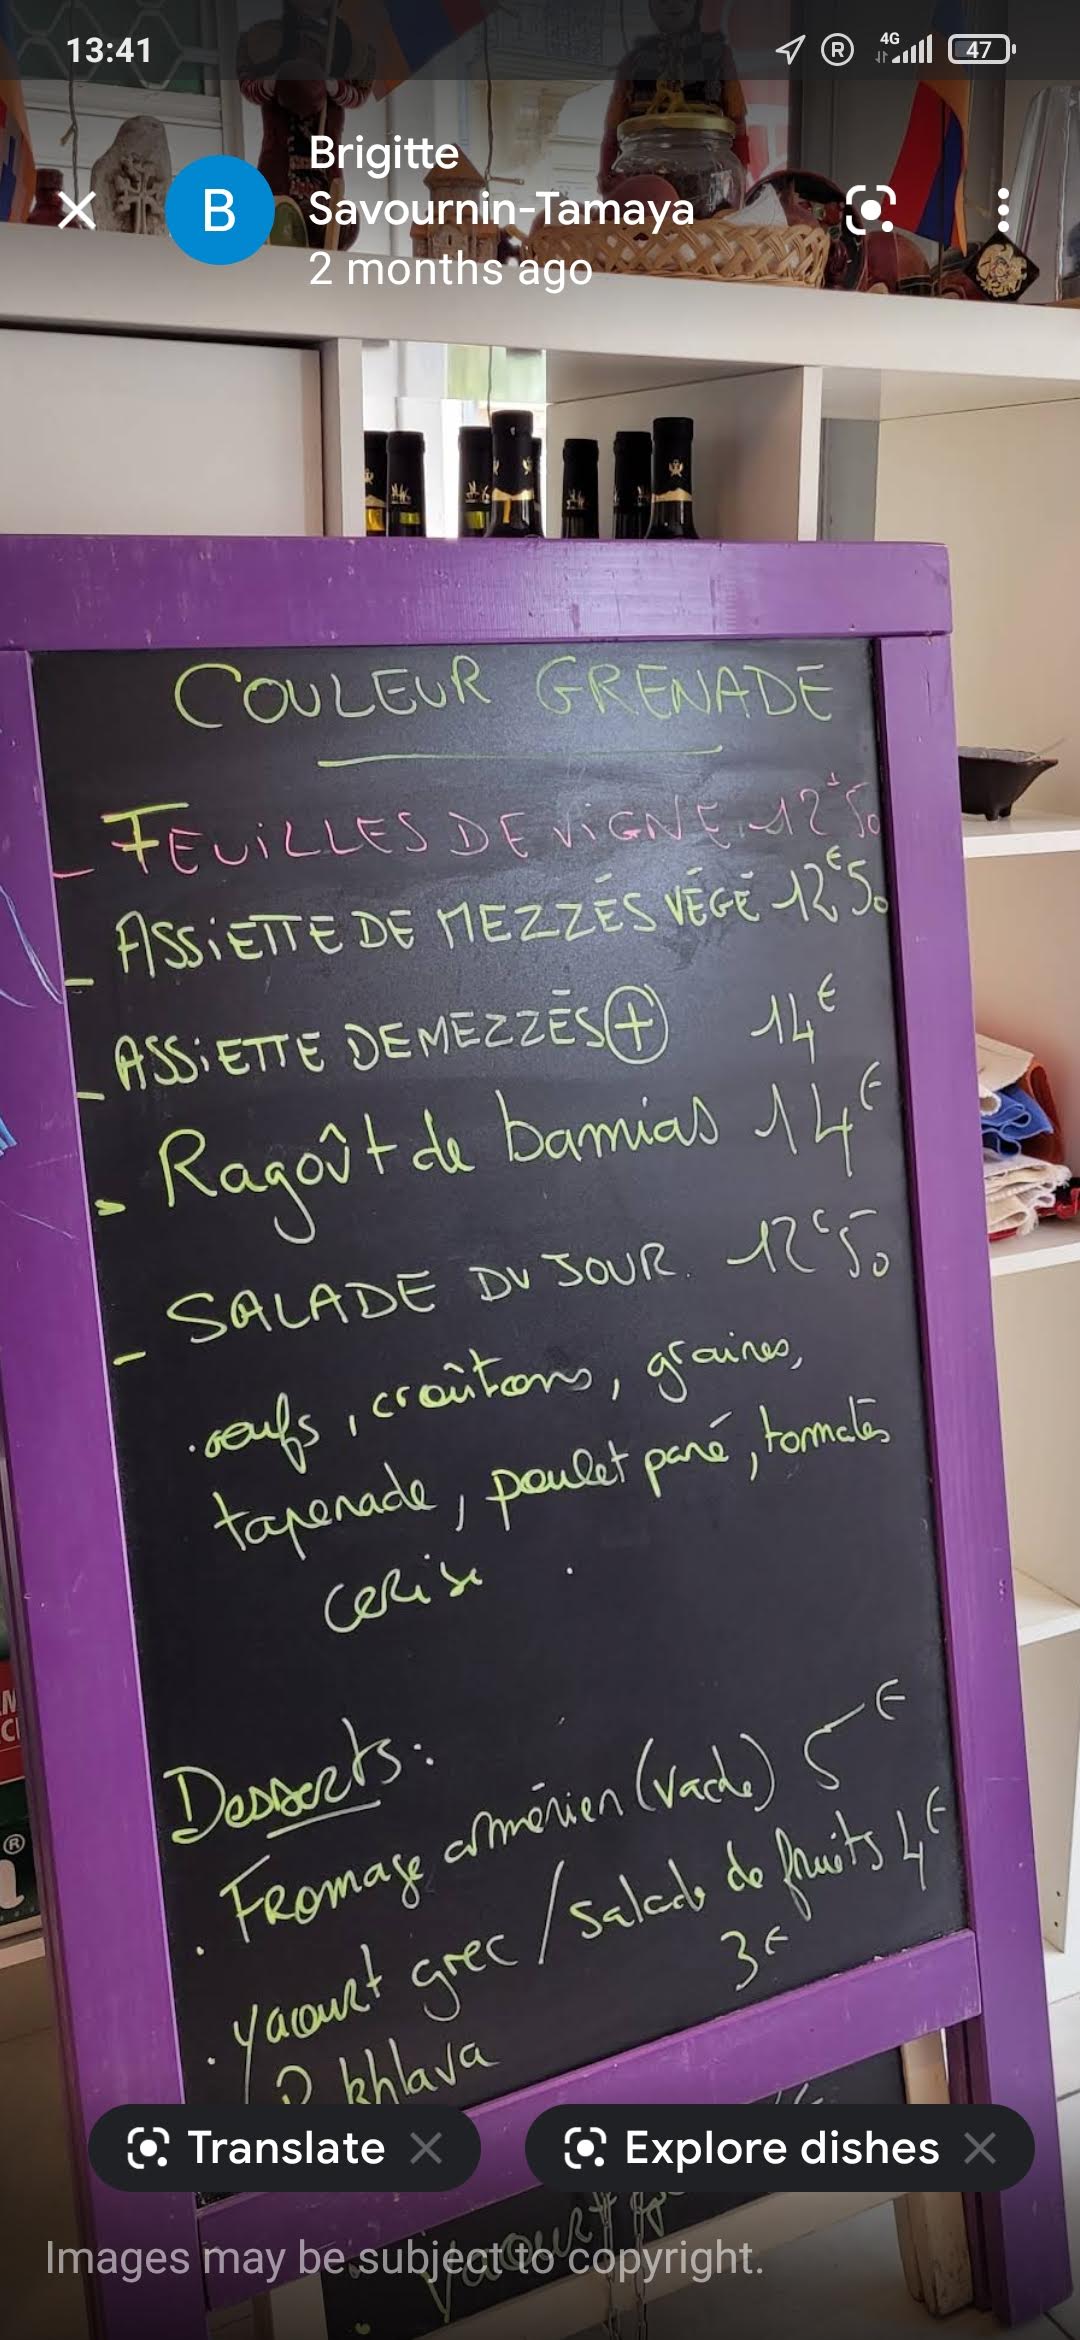 13:41
4G
47
Brigitte
Savournin-Tamaya
B
2 months ago
COULEUR GRENADE
- FEUILLES DE VIGNE 12€50
- ASSIETTE DE MEZZÉS VÉGÉ 12€50
- ASSIETTE DE MEZZÉS + 14€
- Ragoût de bamias 14€
- SALADE DU JOUR. 12€50
. oeufs, croûtons, graines,
tapenade, poulet pané, tomates
cerise .
Desserts:
. Fromage arménien (vache) 5€
. yaourt grec / salade de fruits 4€
khlava 3€
®
Translate
Explore dishes
Images may be subject to copyright.